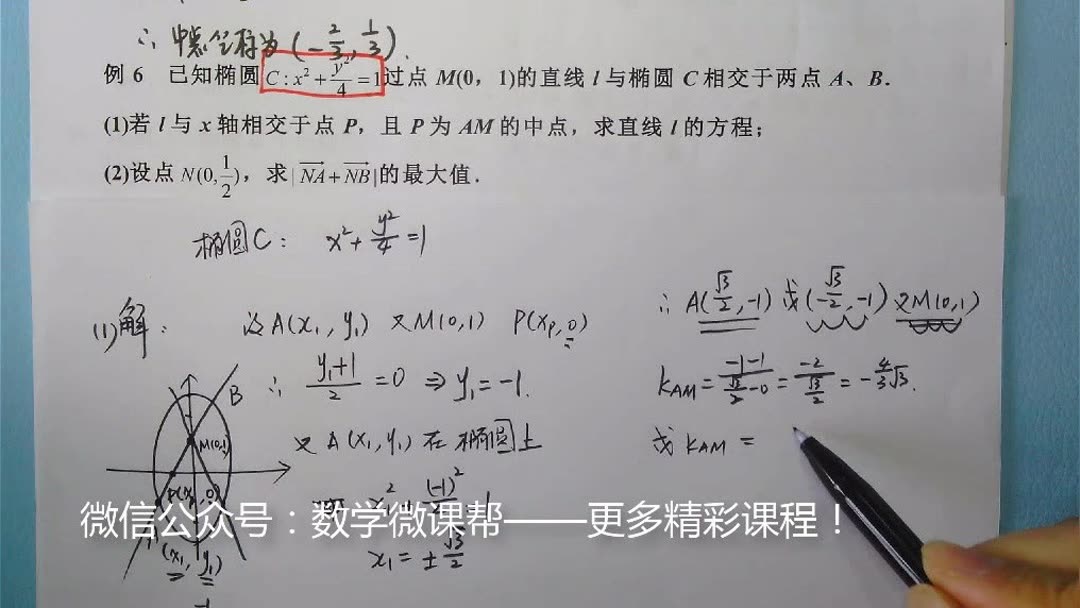 ∴ 中点坐标为(-2/3, 1/3).
例 6 已知椭圆 C : x² + y²/4 = 1 过点 M(0，1)的直线 l 与椭圆 C 相交于两点 A、B．
(1)若 l 与 x 轴相交于点 P，且 P 为 AM 的中点，求直线 l 的方程；
(2)设点 N(0, 1/2)，求| NA + NB |的最大值．
椭圆C： x² + y²/4 = 1
(1)解： 设A(x₁, y₁) 又M(0,1) P(xₚ, 0)
∴ (y₁+1)/2 = 0 ⇒ y₁ = -1.
又 A(x₁, y₁) 在椭圆上
x₁² + (-1)²/4 = 1
x₁ = ± √3/2
B
M(0,1)
P(xₚ, 0)
(x₁, y₁)
-1
∴ A(√3/2, -1) 或(-√3/2, -1) 又M(0,1)
k_AM = (-1-1)/(√3/2 - 0) = -2/(√3/2) = -4/3 √3.
或 k_AM =
微信公众号：数学微课帮——更多精彩课程！